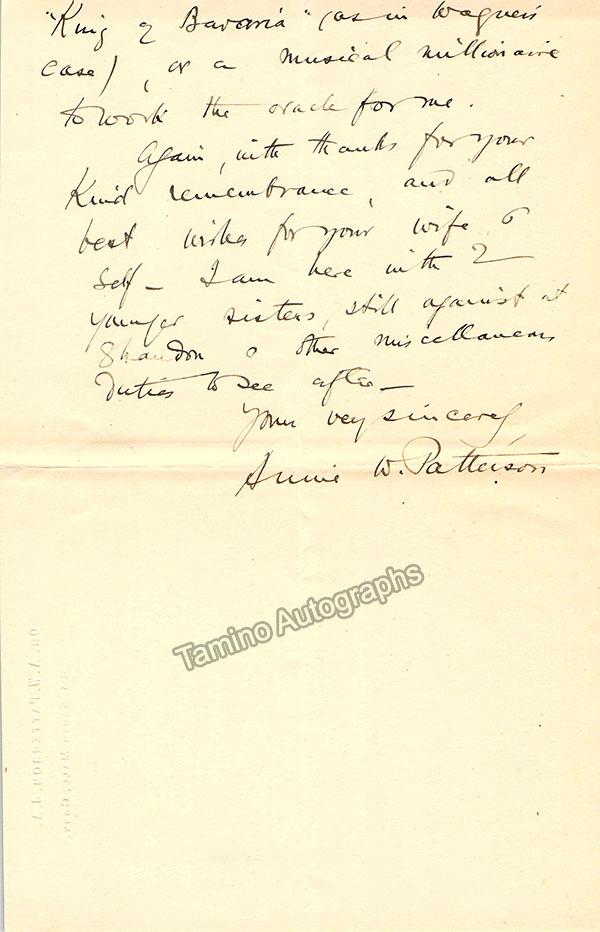 "King of Bavaria" (as in Wagner's
case), or a musical millionaire
to work the oracle for me.
Again, with thanks for your
kind remembrance, and all
best wishes for your wife &
self — I am here with 2
younger sisters, still organist at
Shandon & other miscellaneous
duties to see after —
Yours very sincerely,
Annie W. Patterson
Tamino Autographs
DR. A. W. PATTERSON, J.A.
South Mall, Cork.